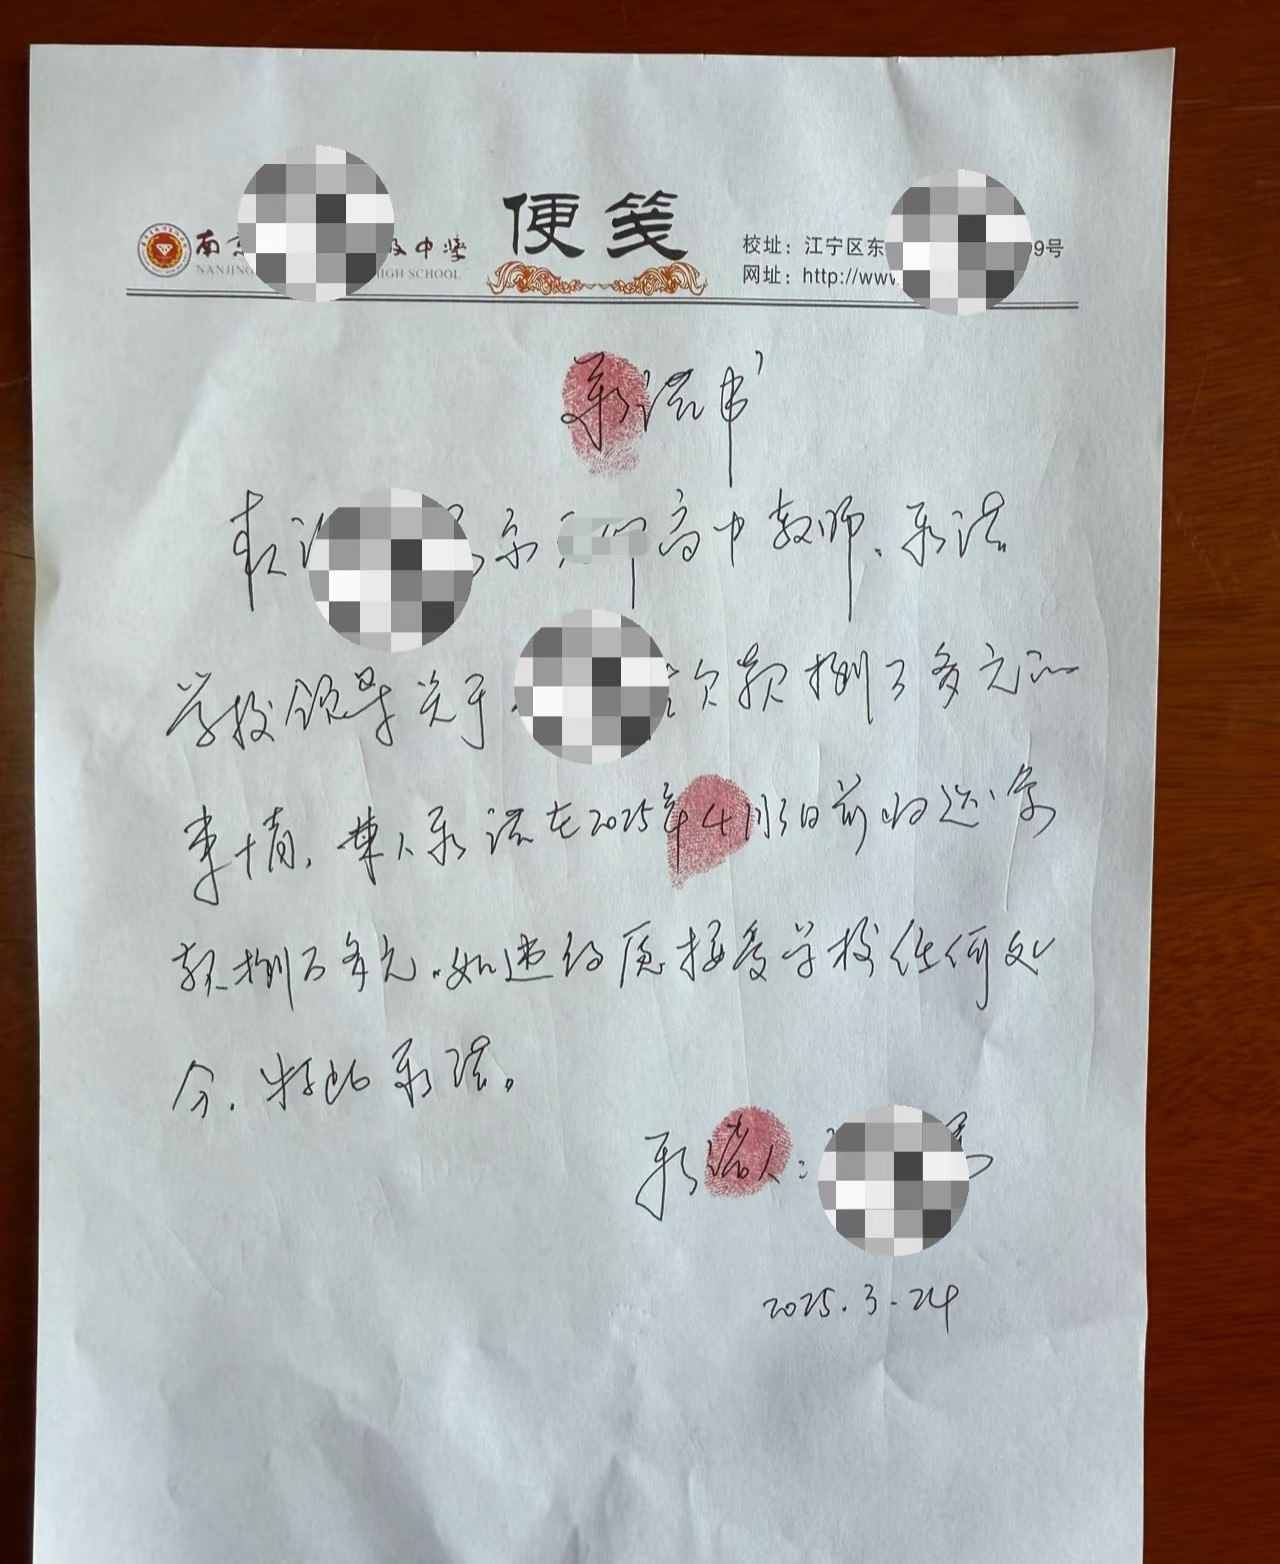 南京 级中学 便笺 校址：江宁区东 9号
NANJING HIGH SCHOOL 网址：http://www.
承诺书
我 京 师 高中教师、承诺
学校领导关于 欠款捌万多元的
事情，本人承诺在2025年4月 日前归还
款捌万多元。如违约愿接受学校任何处
分。特此承诺。
承诺人：
2025.3.24